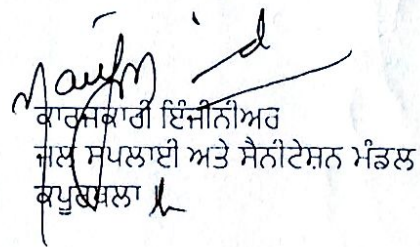 ਕਾਰਜਕਾਰੀ ਇੰਜੀਨੀਅਰ
ਜਲ ਸਪਲਾਈ ਅਤੇ ਸੈਨੀਟੇਸ਼ਨ ਮੰਡਲ
ਕਪੂਰਥਲਾ